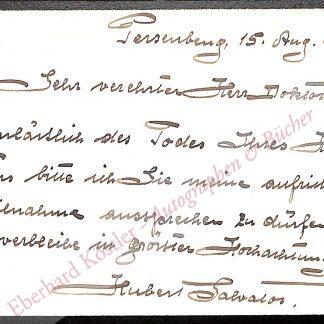 Persenbeug, 15. Aug.
Sehr verehrter Herr Doktor
anlässlich des Todes Ihres
bitte ich Sie meine aufrich
ilnahme aussprechen zu dürfen
verbleibe in grösster Hochachtung
Hubert Salvator.
Eberhard Köstler - Autographen & Bücher